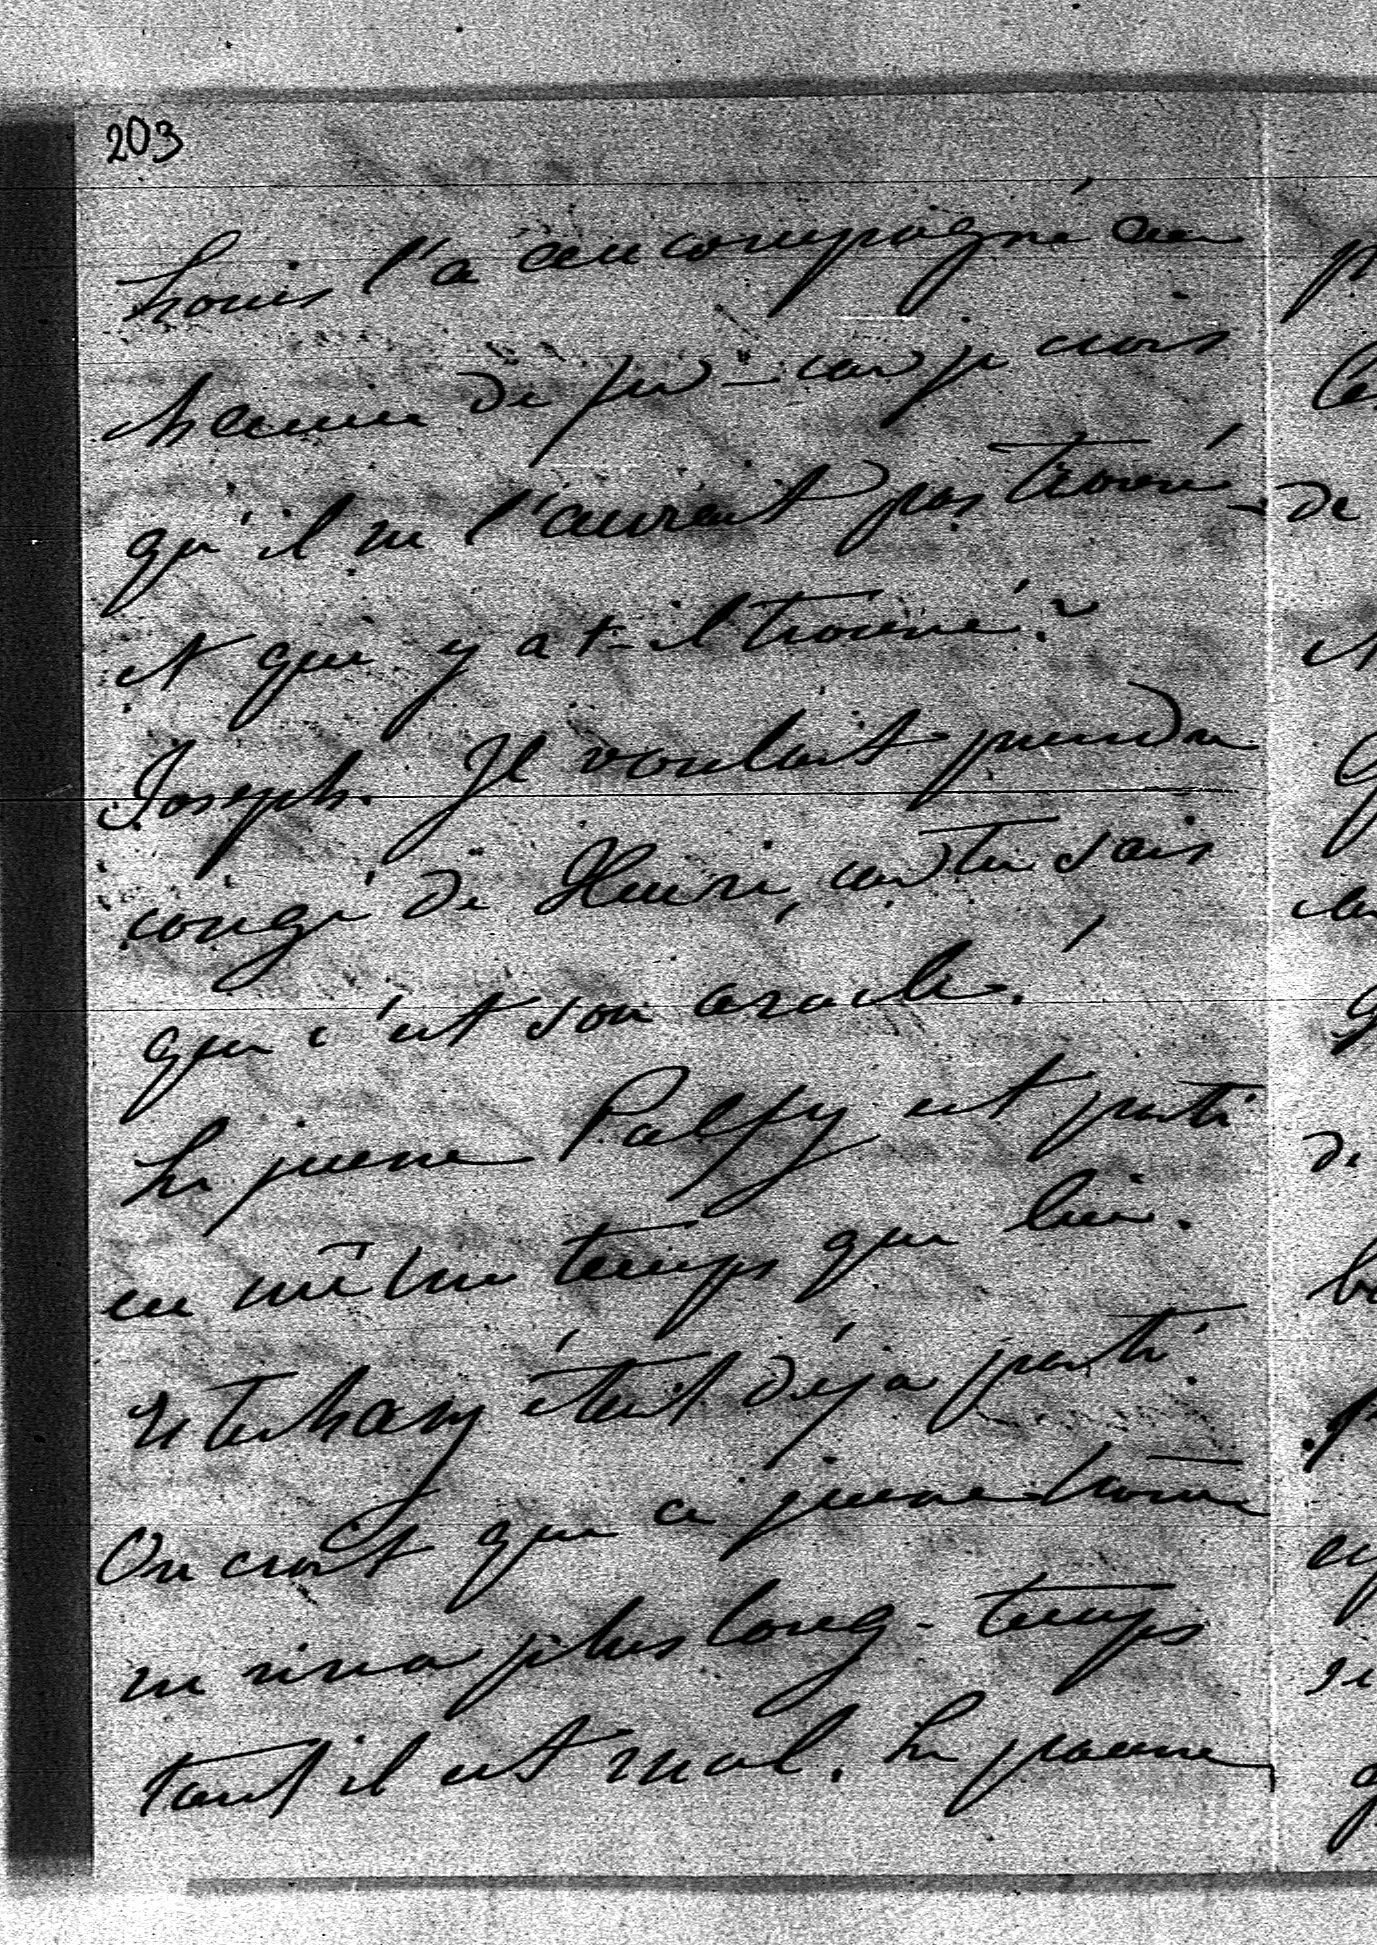 203
Louis l'a accompagné au
chemin de fer – car je crois
qu'il ne l'aurait pas trouvé –
et qui y a t-il trouvé?
Joseph. Il voulait prendre
congé de Henri, car tu sais
que c'est son oracle.
Le jeune Palfy est parti
en même temps que lui.
était déjà parti.
On croit que ce jeune homme
ne vivra plus long-temps
tant il est mal. Le pauvre
de